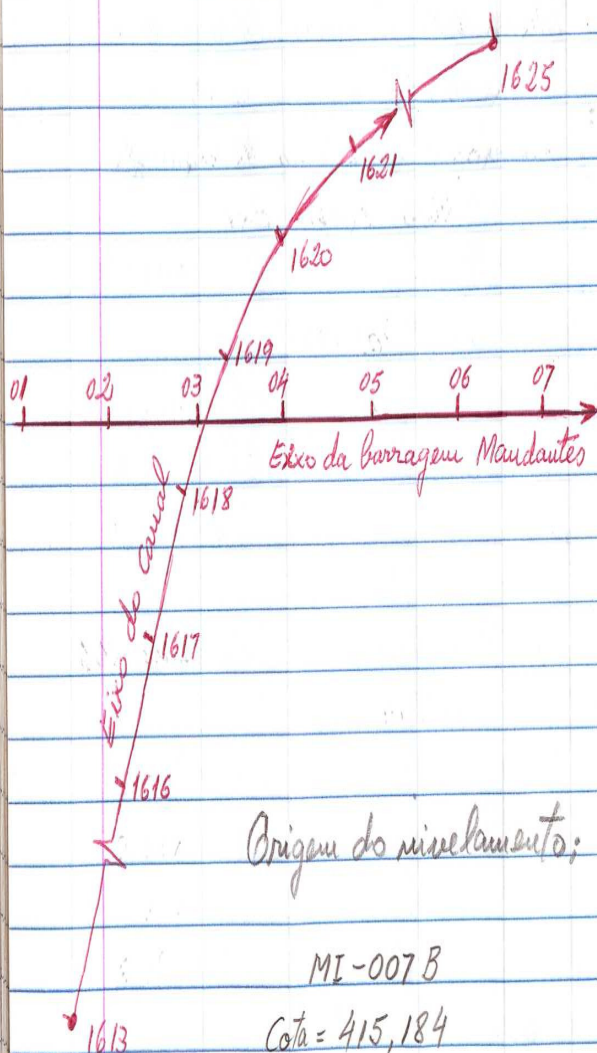 1625
1621
1620
1619
01 02 03 04 05 06 07
Eixo da barragem Mandantes
1618
Eixo do canal
1617
1616
Origem do nivelamento:
MI-007B
Cota = 415,184
1613